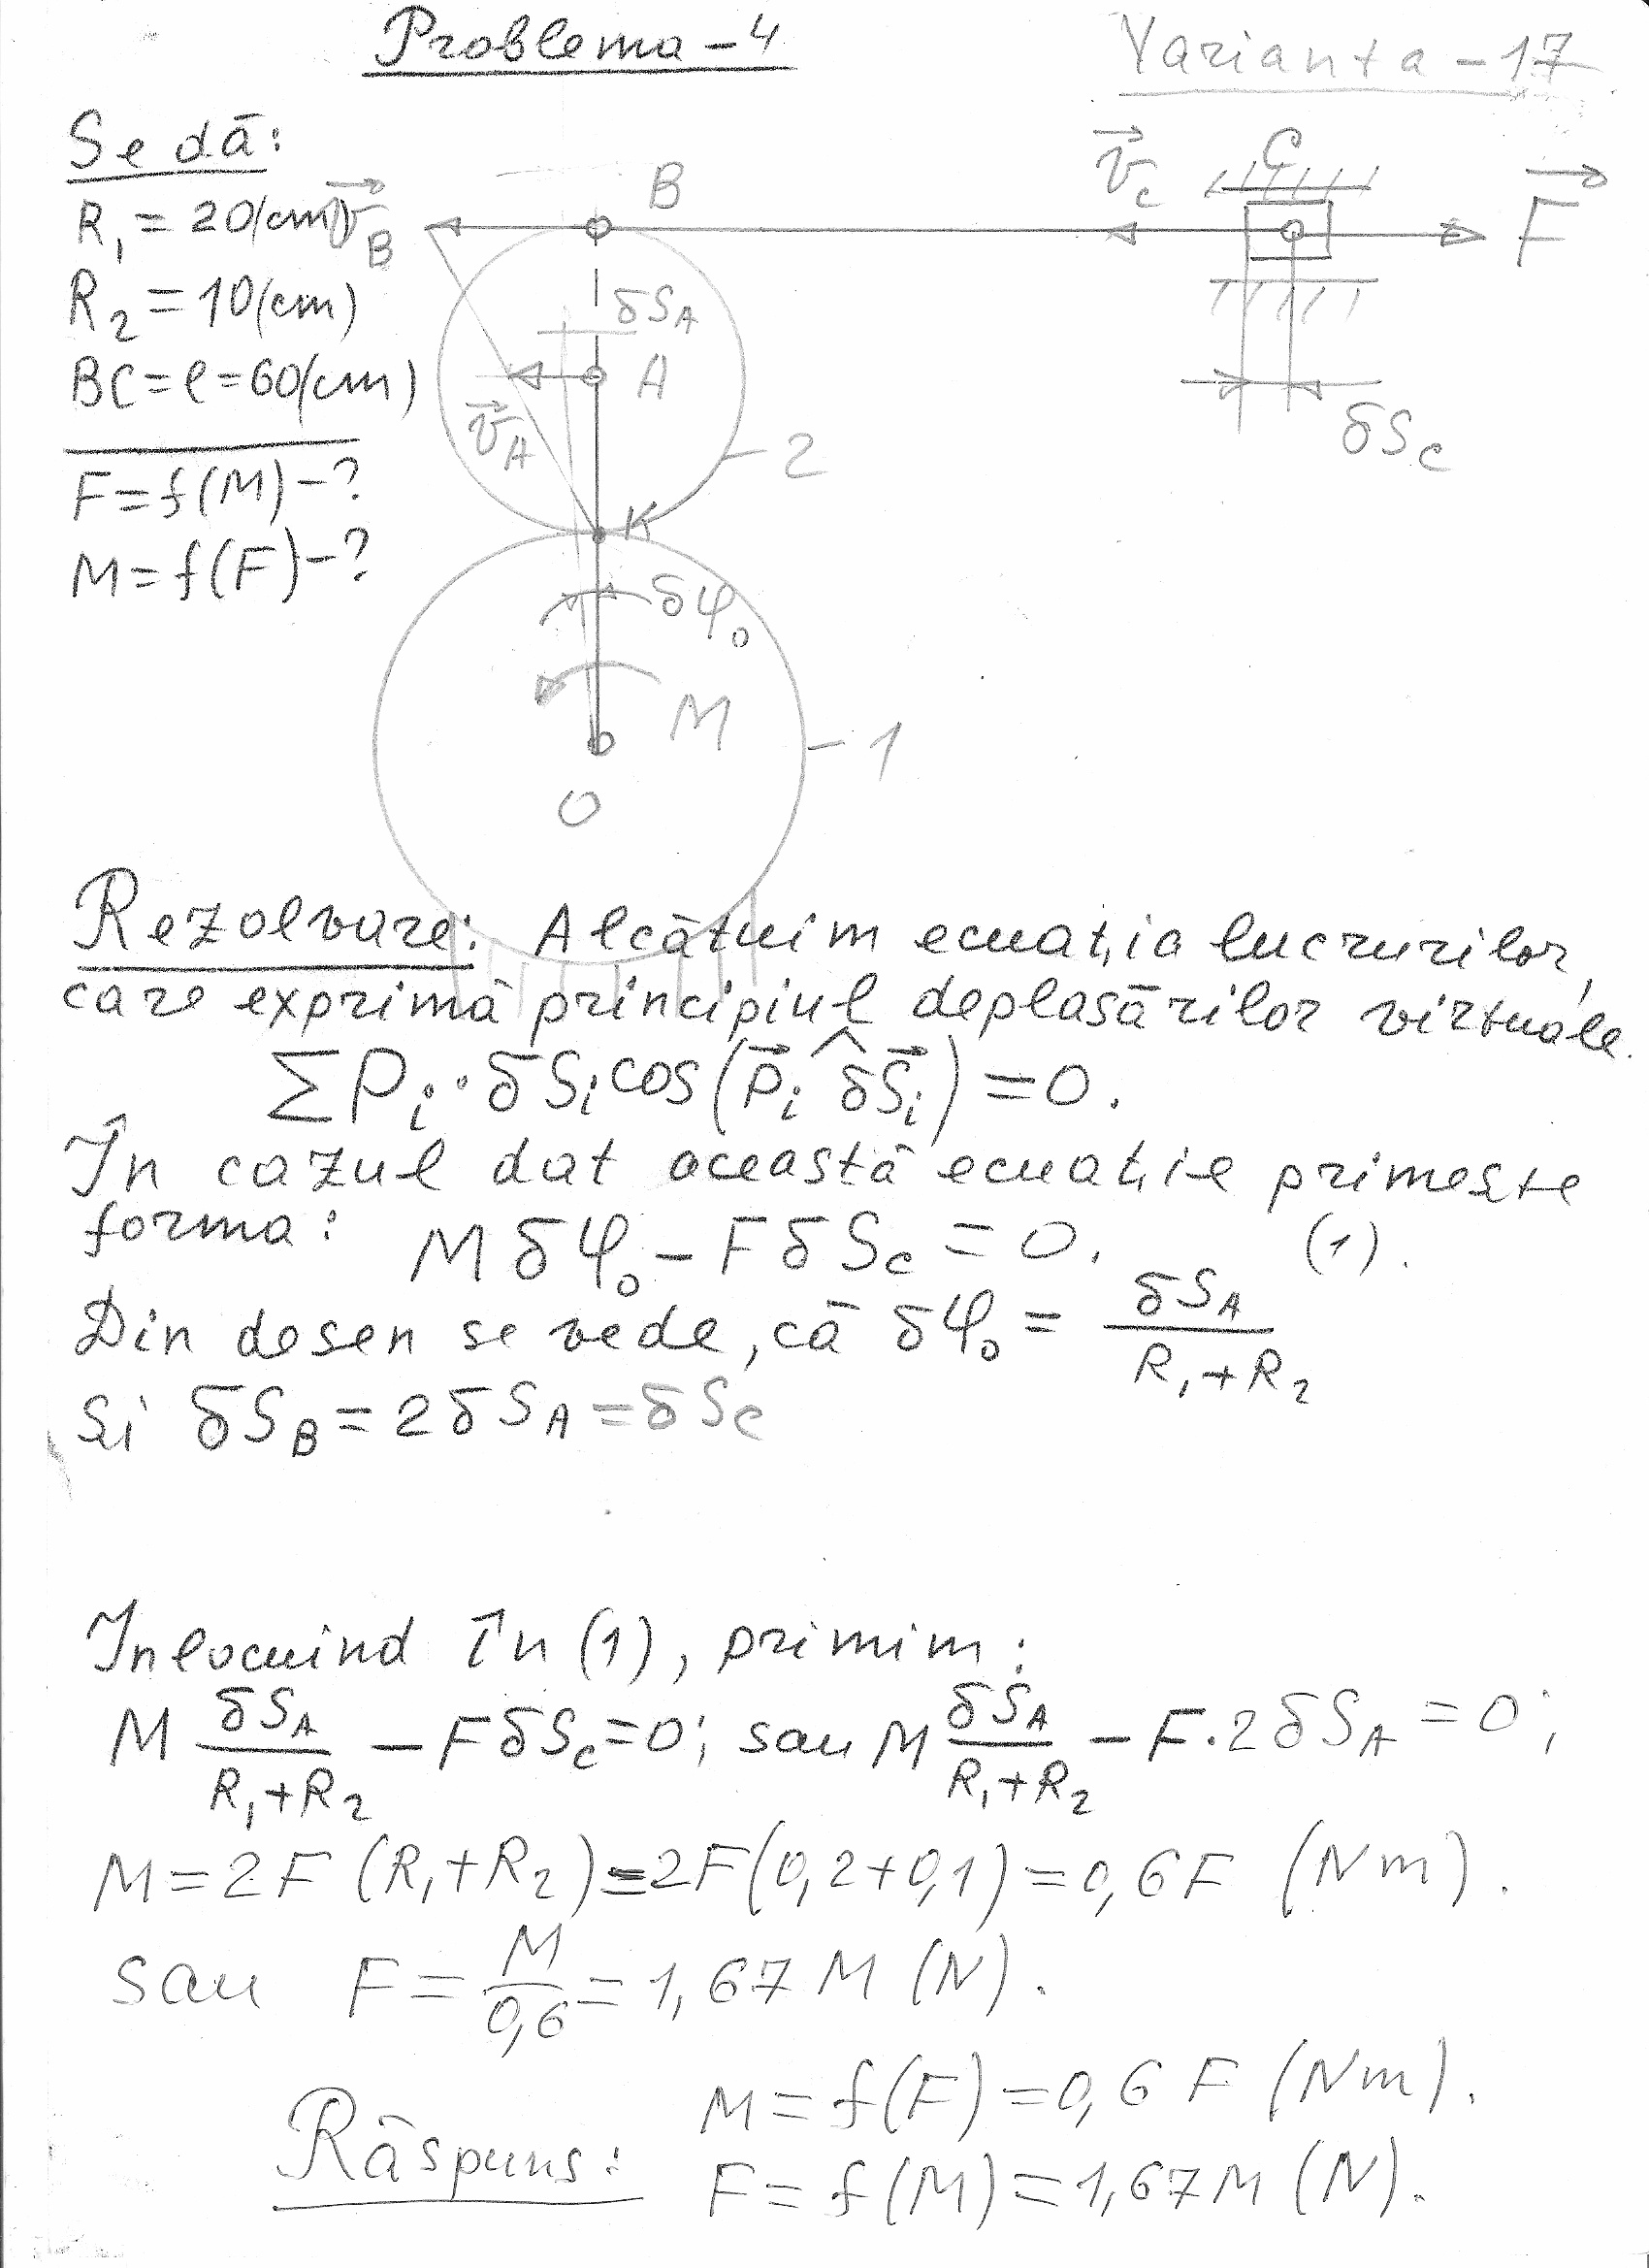 Problema-4
Varianta-17
Se dă:
R₁ = 20(cm)
R₂ = 10(cm)
BC = l = 60(cm)
F = f(M) - ?
M = f(F) - ?
v⃗_B
B
v⃗_C
C
F⃗
δS_A
A
v⃗_A
δS_C
2
K
δφ₀
M
1
O
Rezolvare: Alcătuim ecuația lucrurilor,
care exprimă principiul deplasărilor virtuale.
ΣPᵢ·δSᵢcos(P⃗ᵢ^δS⃗ᵢ) = 0.
În cazul dat această ecuație primește
forma: Mδφ₀ - FδS_C = 0. (1).
Din desen se vede, că δφ₀ = δS_A/(R₁+R₂)
și δS_B = 2δS_A = δS_C
Înlocuind în (1), primim:
M δS_A/(R₁+R₂) - FδS_C = 0; sau M δS_A/(R₁+R₂) - F·2δS_A = 0;
M = 2F(R₁+R₂) = 2F(0,2+0,1) = 0,6F (Nm).
sau F = M/0,6 = 1,67M (N).
M = f(F) = 0,6F (Nm).
Răspuns: F = f(M) = 1,67M (N).